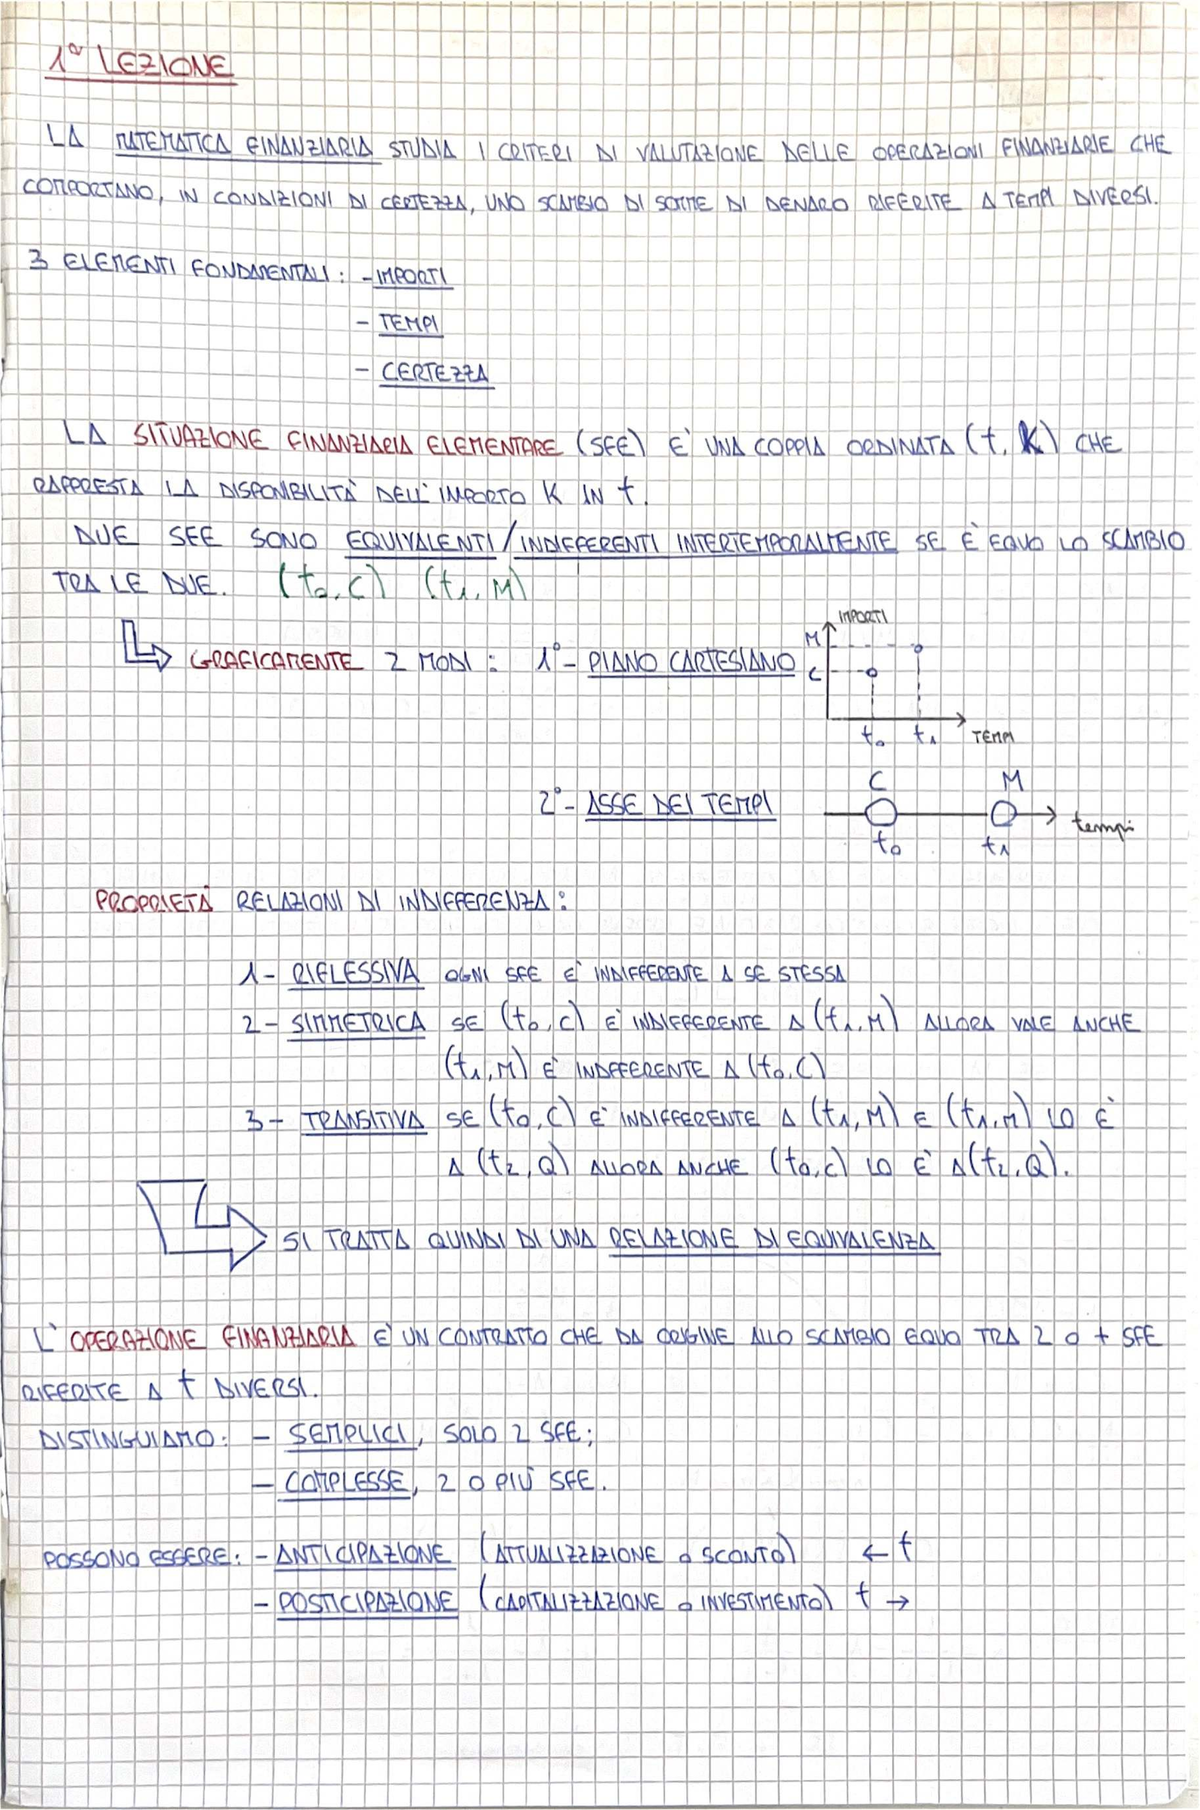 1ª LEZIONE
LA MATEMATICA FINANZIARIA STUDIA I CRITERI DI VALUTAZIONE DELLE OPERAZIONI FINANZIARIE CHE
COMPORTANO, IN CONDIZIONI DI CERTEZZA, UNO SCAMBIO DI SOMME DI DENARO RIFERITE A TEMPI DIVERSI.
3 ELEMENTI FONDAMENTALI: - IMPORTI
- TEMPI
- CERTEZZA
LA SITUAZIONE FINANZIARIA ELEMENTARE (SFE) E' UNA COPPIA ORDINATA (t, K) CHE
RAPPRESTA LA DISPONIBILITÀ DELL'IMPORTO K IN t.
DUE SFE SONO EQUIVALENTI/INDIFFERENTI INTERTEMPORALMENTE SE È EQUO LO SCAMBIO
TRA LE DUE. (t₀, C) (t₁, M)
GRAFICAMENTE 2 MODI: 1°- PIANO CARTESIANO
IMPORTI
M
C
t₀ t₁ TEMPI
2°- ASSE DEI TEMPI
C M
tempi
t₀ t₁
PROPRIETÀ RELAZIONI DI INDIFFERENZA:
1- RIFLESSIVA OGNI SFE E' INDIFFERENTE A SE STESSA
2- SIMMETRICA SE (t₀, C) E' INDIFFERENTE A (t₁, M) ALLORA VALE ANCHE
(t₁, M) E' INDIFFERENTE A (t₀, C)
3- TRANSITIVA SE (t₀, C) E' INDIFFERENTE A (t₁, M) E (t₁, M) LO È
A (t₂, Q) ALLORA ANCHE (t₀, C) LO E' A (t₂, Q).
SI TRATTA QUINDI DI UNA RELAZIONE DI EQUIVALENZA
L'OPERAZIONE FINANZIARIA E' UN CONTRATTO CHE DA ORIGINE ALLO SCAMBIO EQUO TRA 2 O + SFE
RIFERITE A t DIVERSI.
DISTINGUIAMO: - SEMPLICI, SOLO 2 SFE;
- COMPLESSE, 2 O PIÙ SFE.
POSSONO ESSERE: - ANTICIPAZIONE (ATTUALIZZAZIONE o SCONTO) ← t
- POSTICIPAZIONE (CAPITALIZZAZIONE o INVESTIMENTO) t →